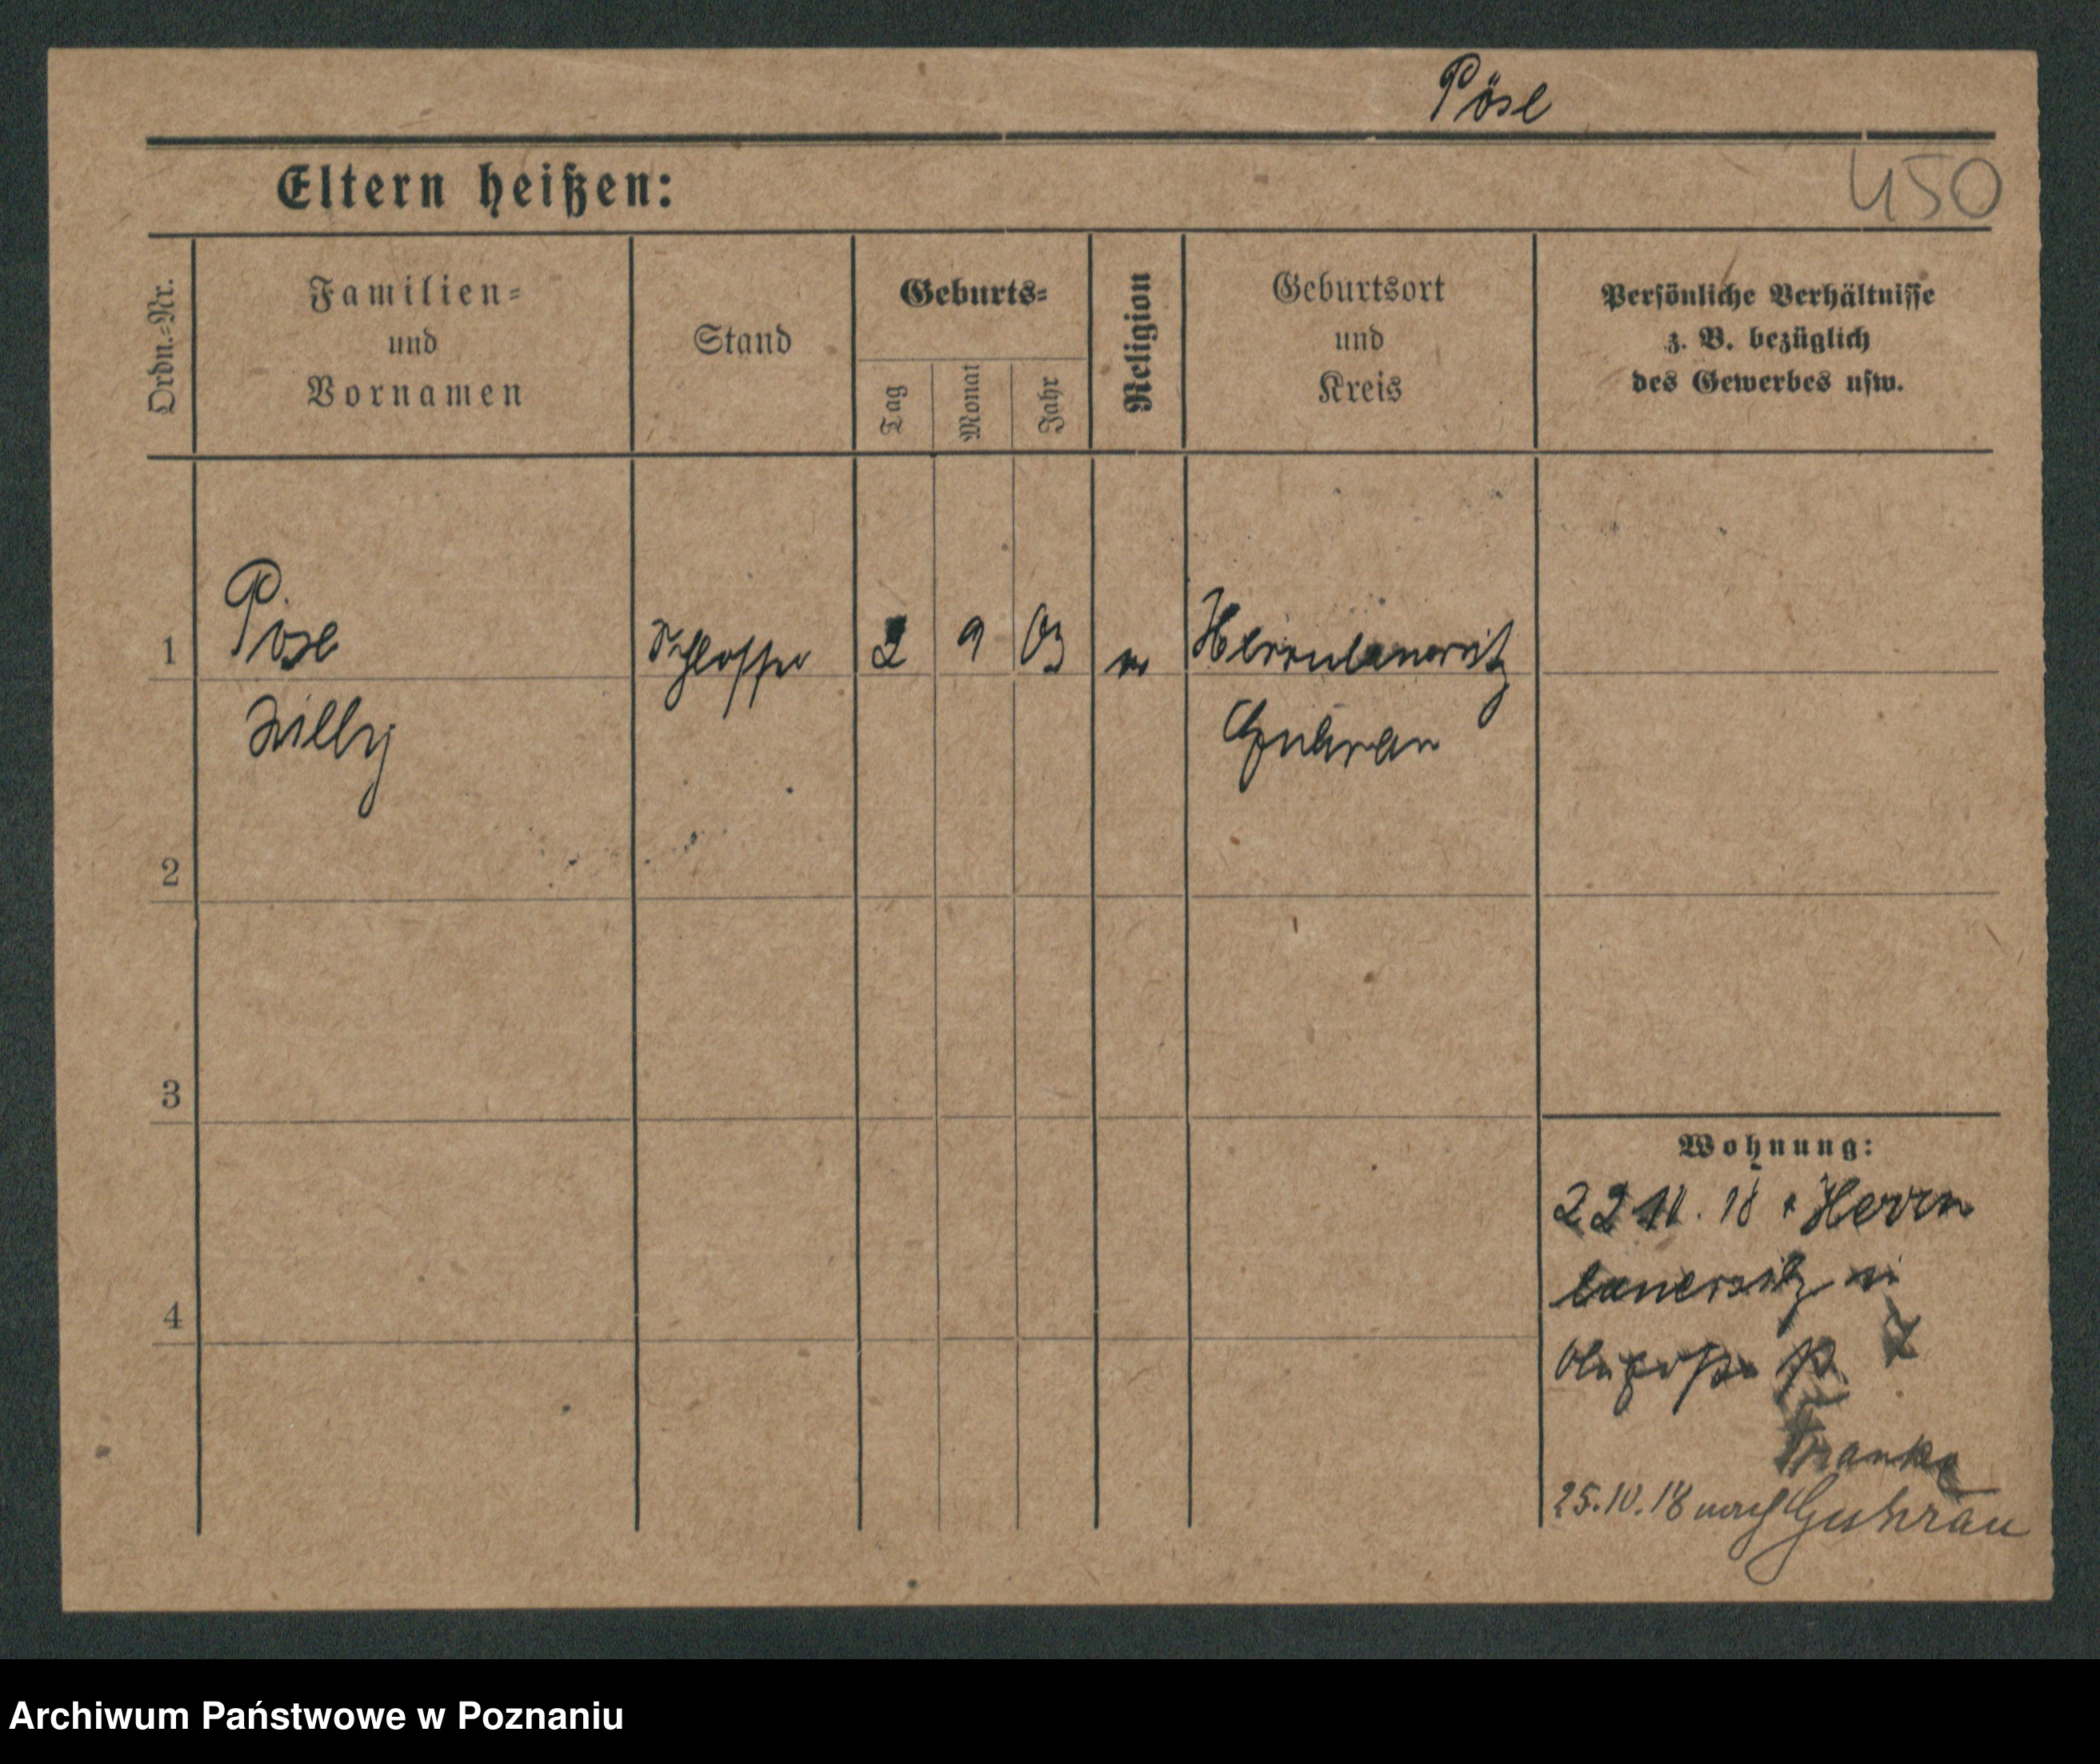 Pöse
450
Eltern heißen:
Ordn.=Nr.
Familien=
und
Vornamen
Stand
Geburts=
Tag
Monat
Jahr
Religion
Geburtsort
und
Kreis
Persönliche Verhältnisse
z. B. bezüglich
des Gewerbes usw.
1
Pöse
Schlosser
2
9
03
Herrnlauersitz
Willy
Guhrau
2
3
4
Wohnung:
22 10. 18 Herrn
lauersitz
Franke
25.10.18 nach Guhrau
Archiwum Państwowe w Poznaniu